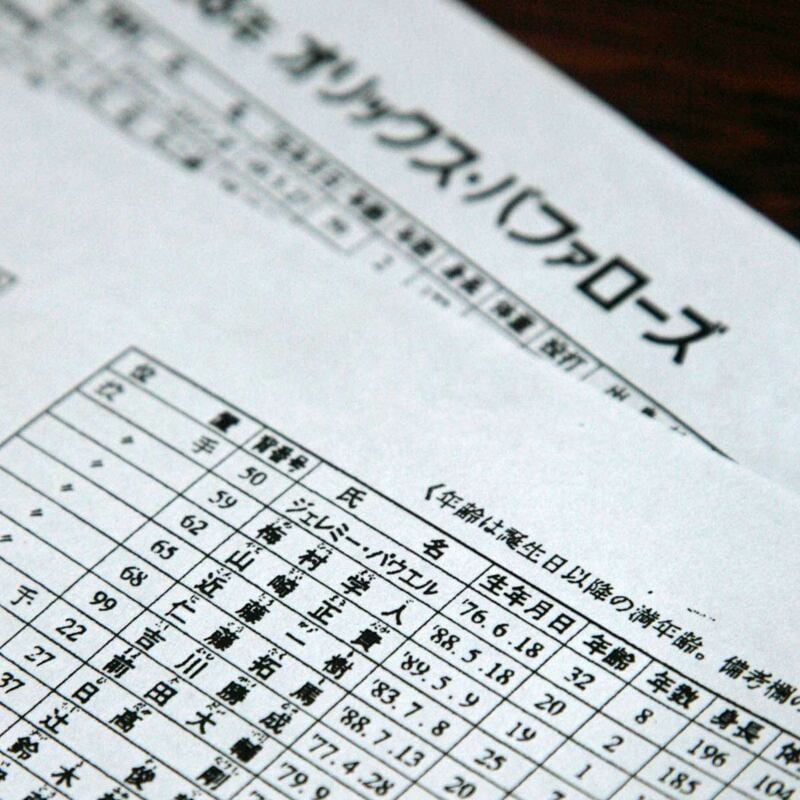 オリックス・バファローズ
身長 体重 投打
《年齢は誕生日以降の満年齢。備考欄の
位置 背番号 氏名 生年月日 年齢 年数 身長 体
投手 50 ジェレミー・パウエル '76.6.18 32 8 196 104
〃 59 梅村学人 '88.5.18 20 2 185
〃 62 山崎正貴 '89.5.9 19 1
〃 65 近藤一樹 '83.7.8 25
〃 68 仁藤拓馬 '88.7.13 20
〃 99 吉川勝成 '77.4.28
手 22 前田大輔 '79.9
27 日高剛
37 辻俊
鈴木